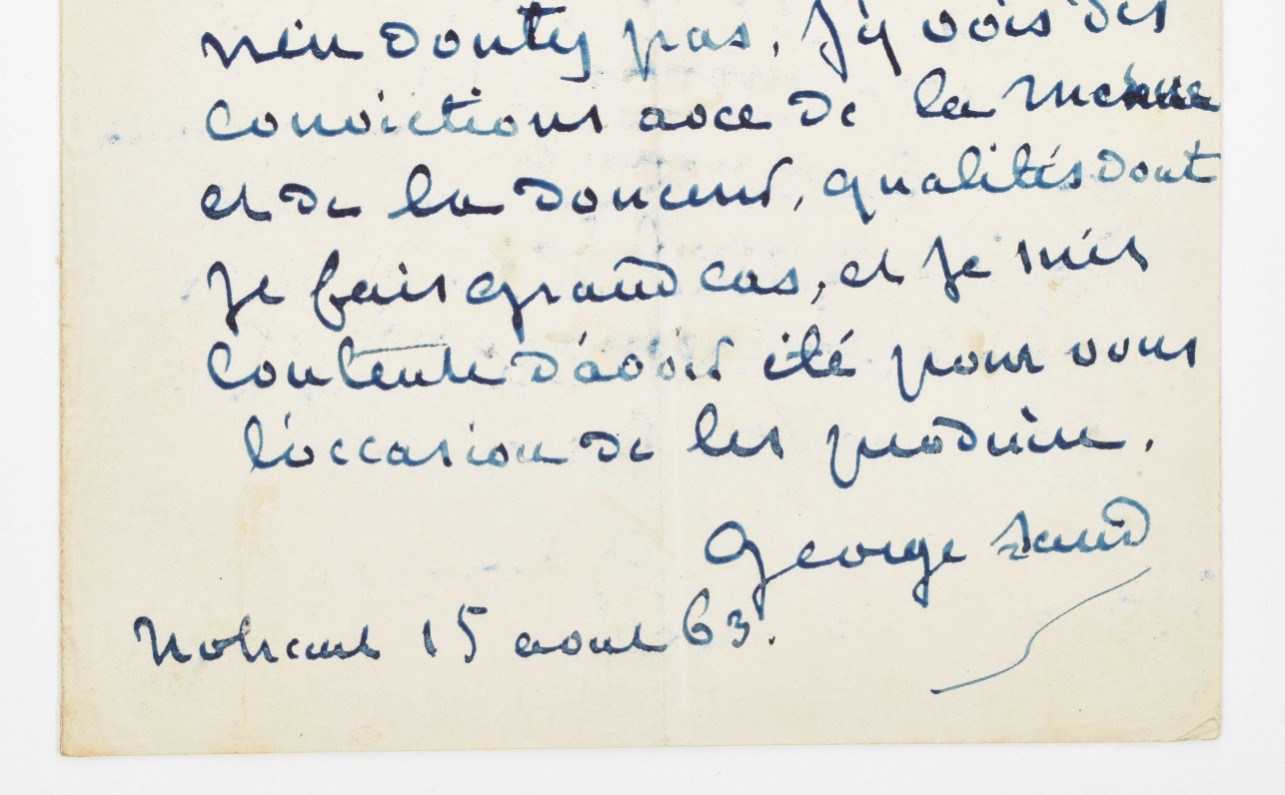 n'en doutez pas. J'y vois des
convictions avec de la mesure
et de la douceur, qualités dont
je fais grand cas, et je suis
contente d'avoir été pour vous
l'occasion de les produire.
George Sand
Nohant 15 aout 63.